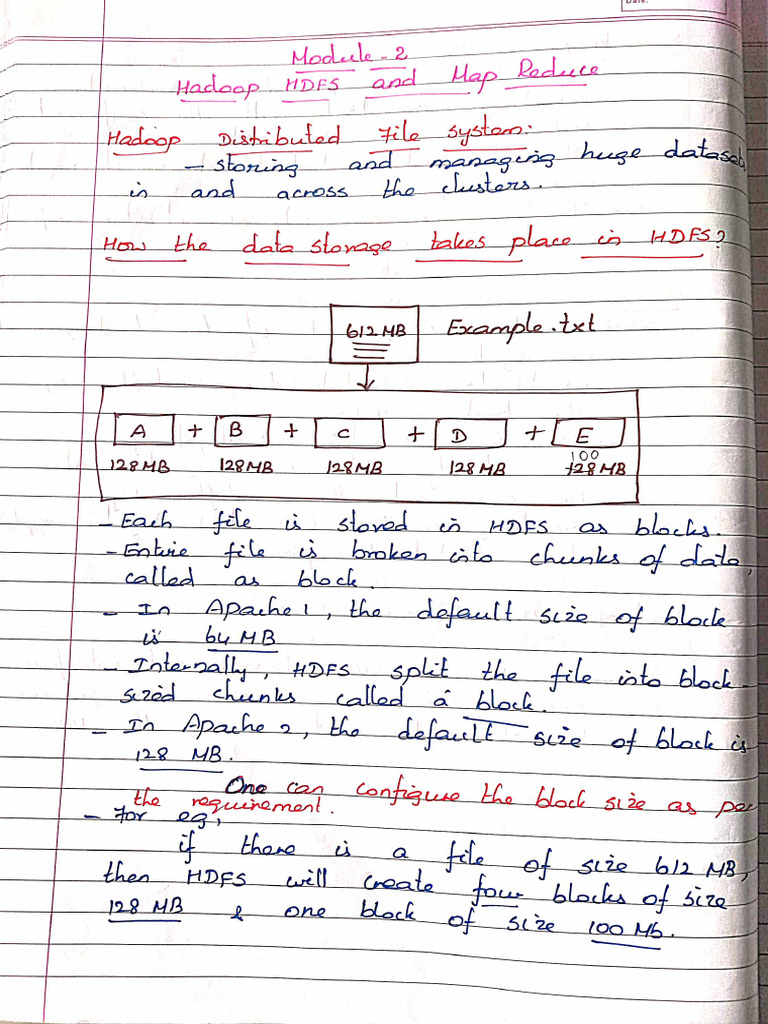 Date:
Module-2
Hadoop HDFS and Map Reduce
Hadoop Distributed File system:
- storing and managing huge datasets
in and across the clusters.
How the data storage takes place in HDFS?
612 MB Example.txt
A + B + C + D + E
100
128 MB 128 MB 128 MB 128 MB 128 MB
- Each file is stored in HDFS as blocks.
- Entire file is broken into chunks of data,
called as block.
- In Apache 1, the default size of block
is 64 MB
- Internally, HDFS split the file into block-
sized chunks called a block.
- In Apache 2, the default size of block is
128 MB.
One can configure the block size as per
the requirement.
- For eg,
if there is a file of size 612 MB,
then HDFS will create four blocks of size
128 MB & one block of size 100 Mb.